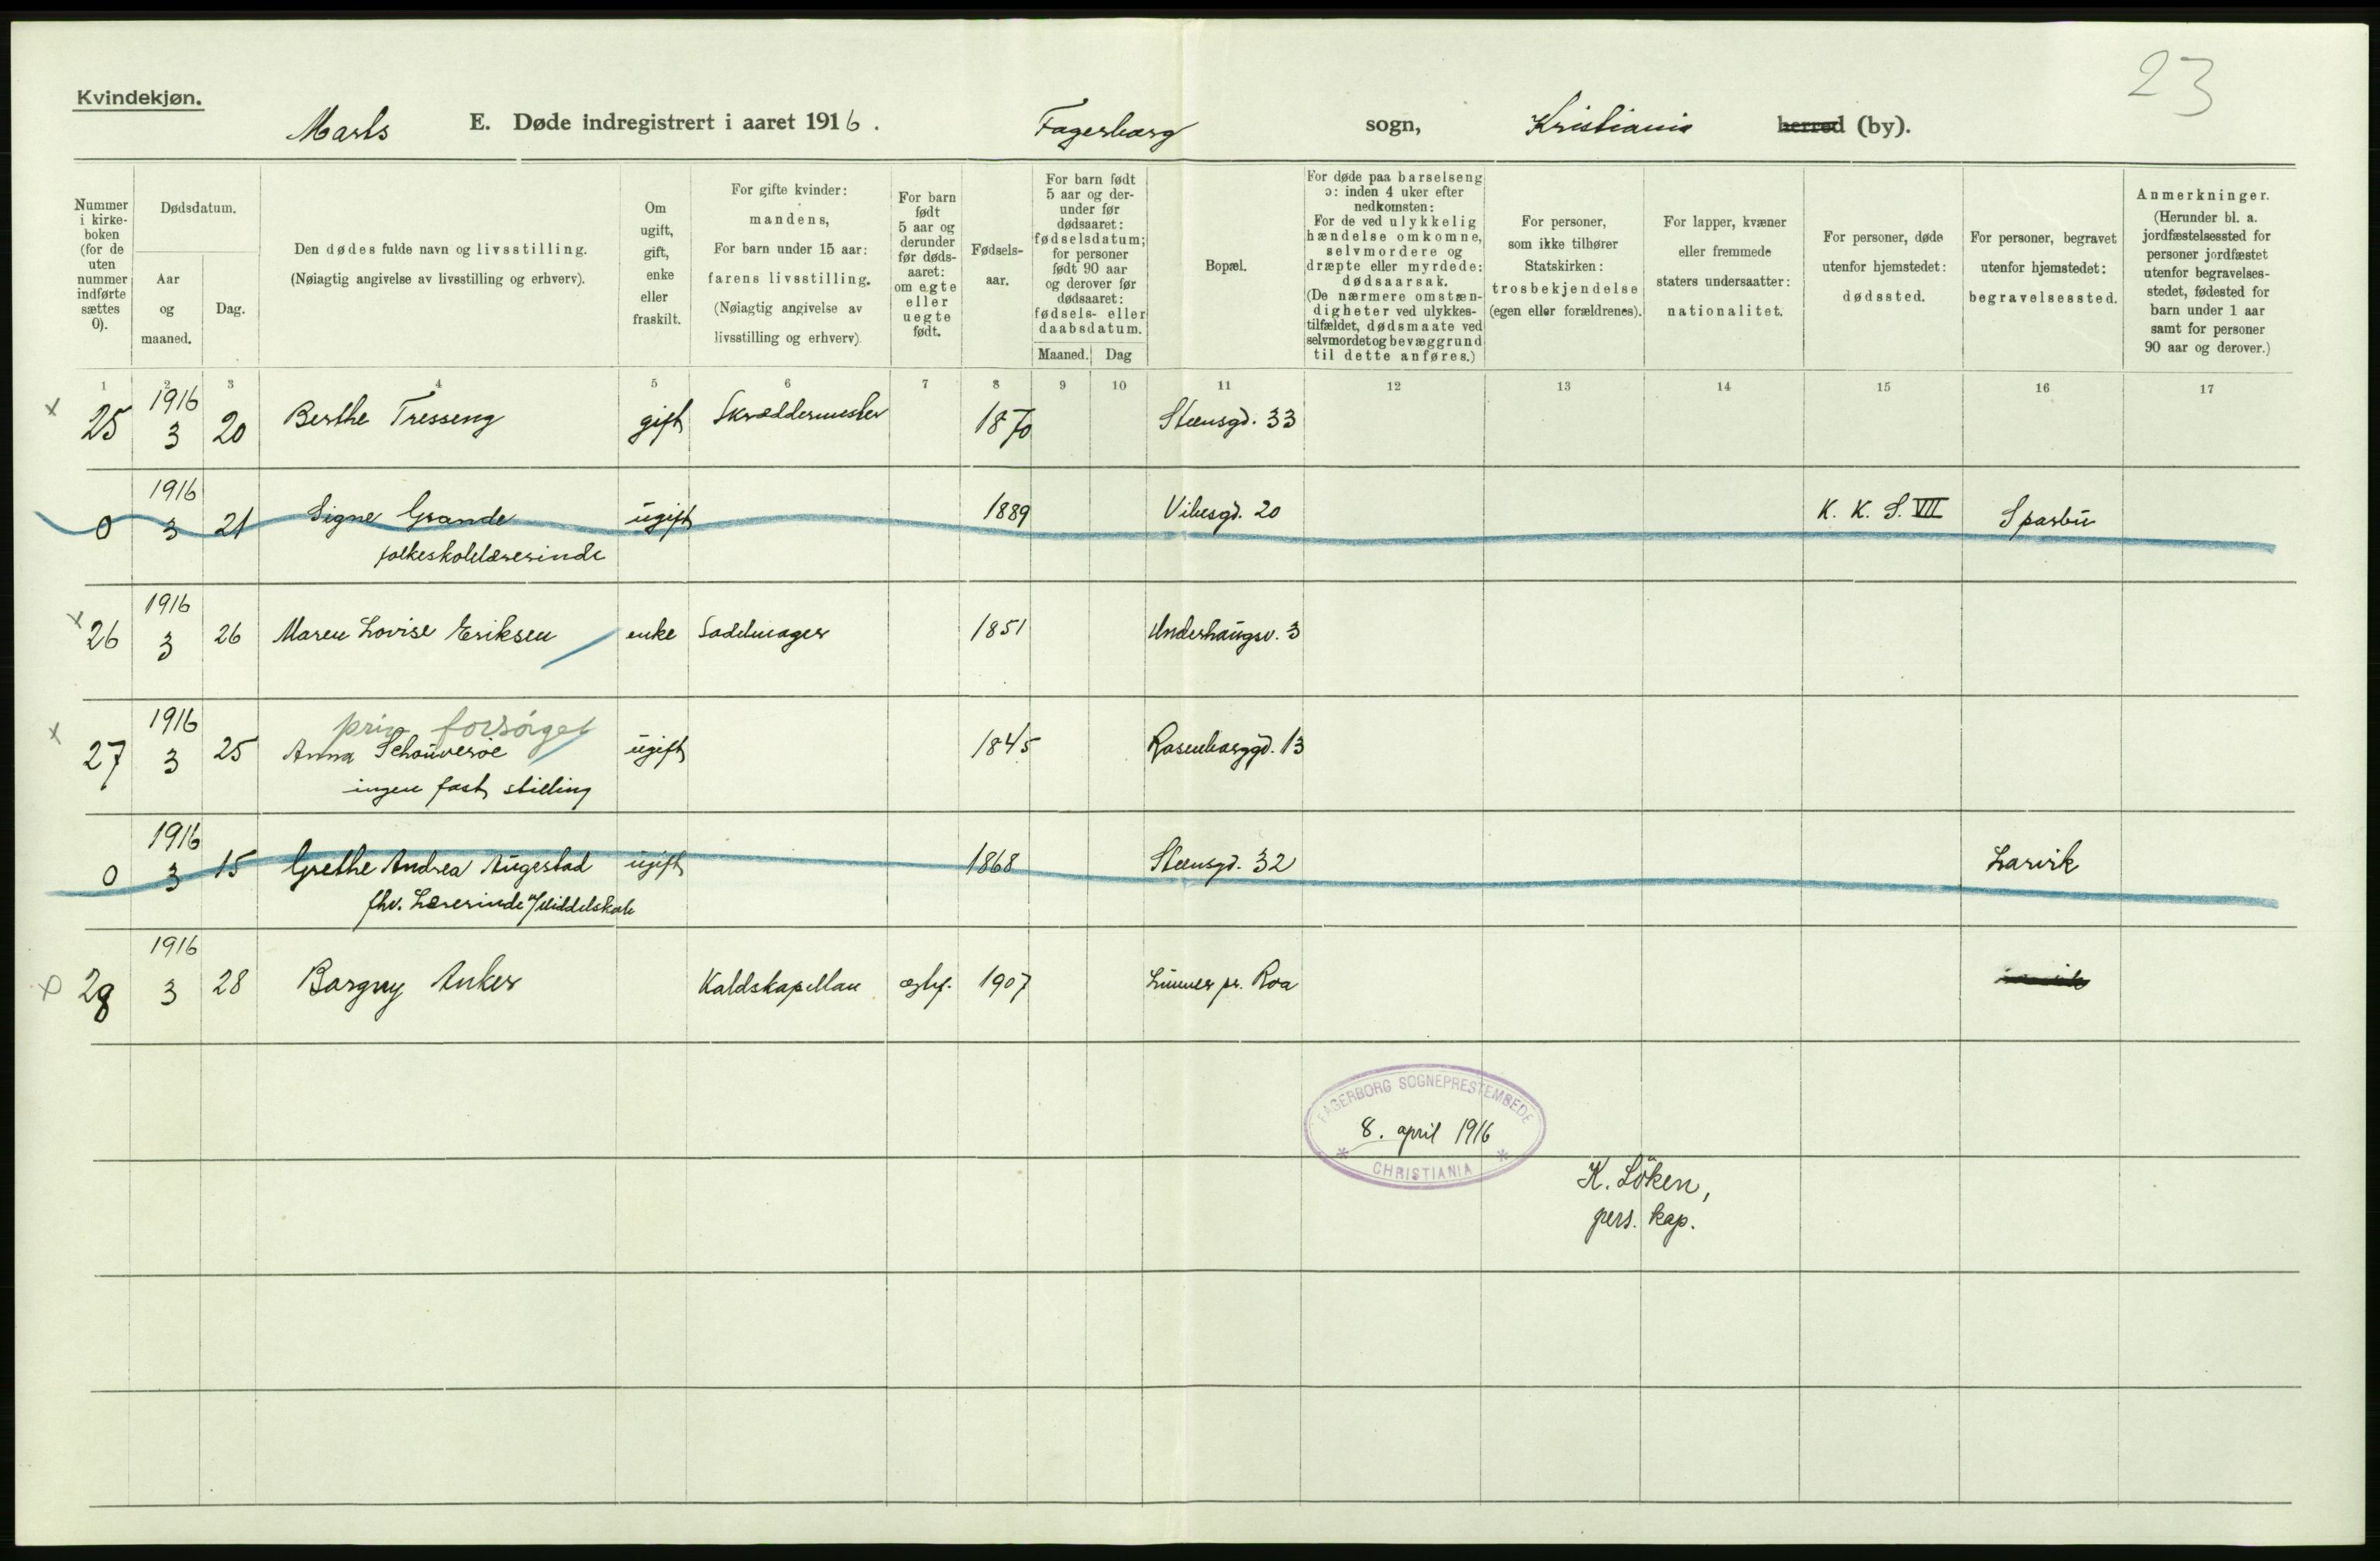 23
Kvindekjøn.
Marts E. Døde indregistrert i aaret 1916. Fagerborg sogn, Kristiania herred (by).
Nummer i kirkeboken (for de uten nummer indførte sættes 0).
Dødsdatum.
Aar og maaned.
Dag.
Den dødes fulde navn og livsstilling.
(Nøiagtig angivelse av livsstilling og erhverv).
Om ugift, gift, enke eller fraskilt.
For gifte kvinder: mandens,
For barn under 15 aar: farens livsstilling.
(Nøiagtig angivelse av livsstilling og erhverv).
For barn født 5 aar og derunder før dødsaaret: om egte eller uegte født.
Fødselsaar.
For barn født 5 aar og derunder før dødsaaret: fødselsdatum; for personer født 90 aar og derover før dødsaaret: fødsels- eller daabsdatum.
Maaned. Dag
Bopæl.
For døde paa barselseng ɔ: inden 4 uker efter nedkomsten: For de ved ulykkelig hændelse omkomne, selvmordere og dræpte eller myrdede: dødsaarsak. (De nærmere omstændigheter ved ulykkestilfældet, dødsmaate ved selvmordet og bevæggrund til dette anføres.)
For personer, som ikke tilhører Statskirken: trosbekjendelse (egen eller forældrenes).
For lapper, kvæner eller fremmede staters undersaatter: nationalitet.
For personer, døde utenfor hjemstedet: dødssted.
For personer, begravet utenfor hjemstedet: begravelsessted.
Anmerkninger. (Herunder bl. a. jordfæstelsessted for personer jordfæstet utenfor begravelsesstedet, fødested for barn under 1 aar samt for personer 90 aar og derover.)
1 2 3 4 5 6 7 8 9 10 11 12 13 14 15 16 17
x 25 1916 3 20 Berthe Tresseng gift Skræddermester 1870 Stensgd. 33
0 1916 3 21 Signe Grande ugift 1889 Vibesgd. 20 K. K. S. VII Sparbu
folkeskolelærerinde
x 26 1916 3 26 Maren Lovise Eriksen enke Sadelmager 1851 Underhaugsv. 3
priv. forsørget
x 27 1916 3 25 Anna Schouverøe ugift 1845 Rosenborggd. 13
ingen fast stilling
0 1916 3 15 Grethe Andrea Augestad ugift 1868 Stensgd. 32 Larvik
fhv. Lærerinde v/Middelskole
28 1916 3 28 Borgny Anker Kaldskapellan egtef. 1907 Lunner pr. Roa
FAGERBORG SOGNEPRESTEMBEDE
8. april 1916
* CHRISTIANIA *
K. Löken,
pers. kap.